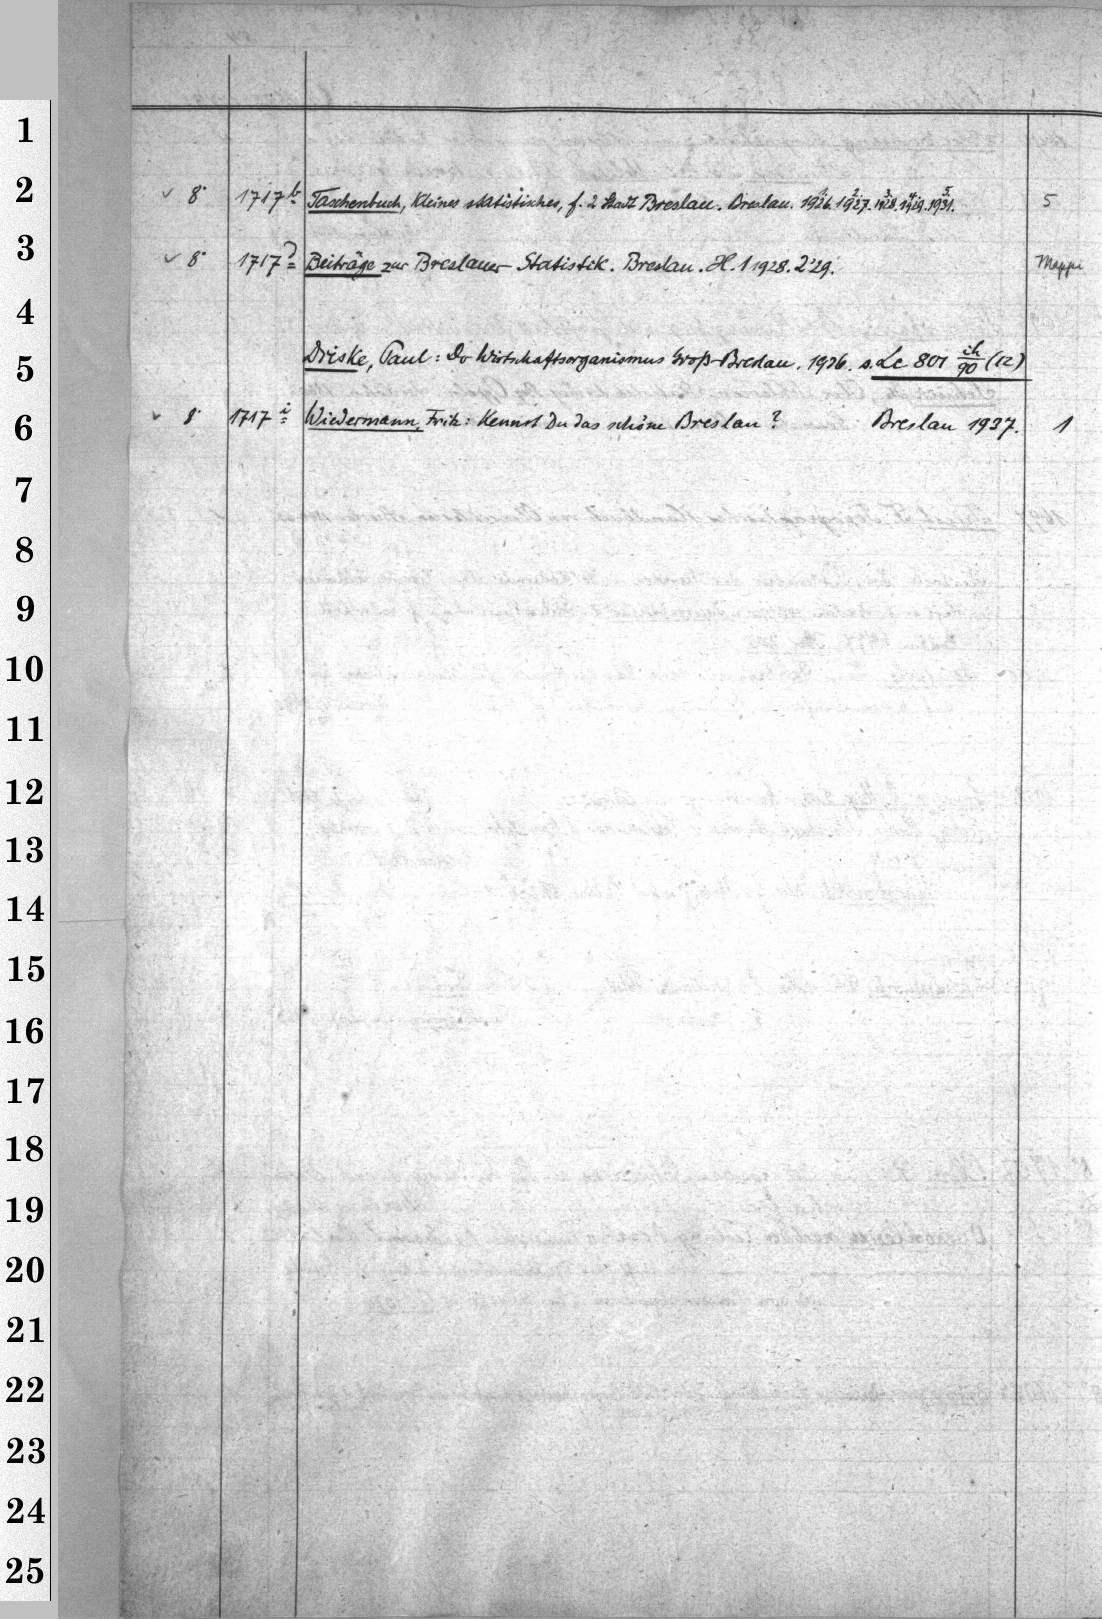 1
2 ✓ 8° 1717 b Taschenbuch, Kleines statistisches, f. d. Stadt Breslau. Breslau. 1926. 1927. 1928. 1929. 1931. 5
3 ✓ 8° 1717 Beiträge zur Breslauer Statistik. Breslau. H. 1 1928. 2 '29. Mappe
4
5 Driske, Paul: Der Wirtschaftsorganismus Groß-Breslau. 1936. s. Lc 801 ih/90 (12)
6 ✓ 8° 1717 i Wiedermann, Fritz: Kennst Du das schöne Breslau? Breslau 1937. 1
7
8
9
10
11
12
13
14
15
16
17
18
19
20
21
22
23
24
25